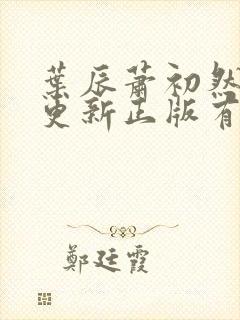 葉辰蕭初然
更新正版有
鄭廷霞